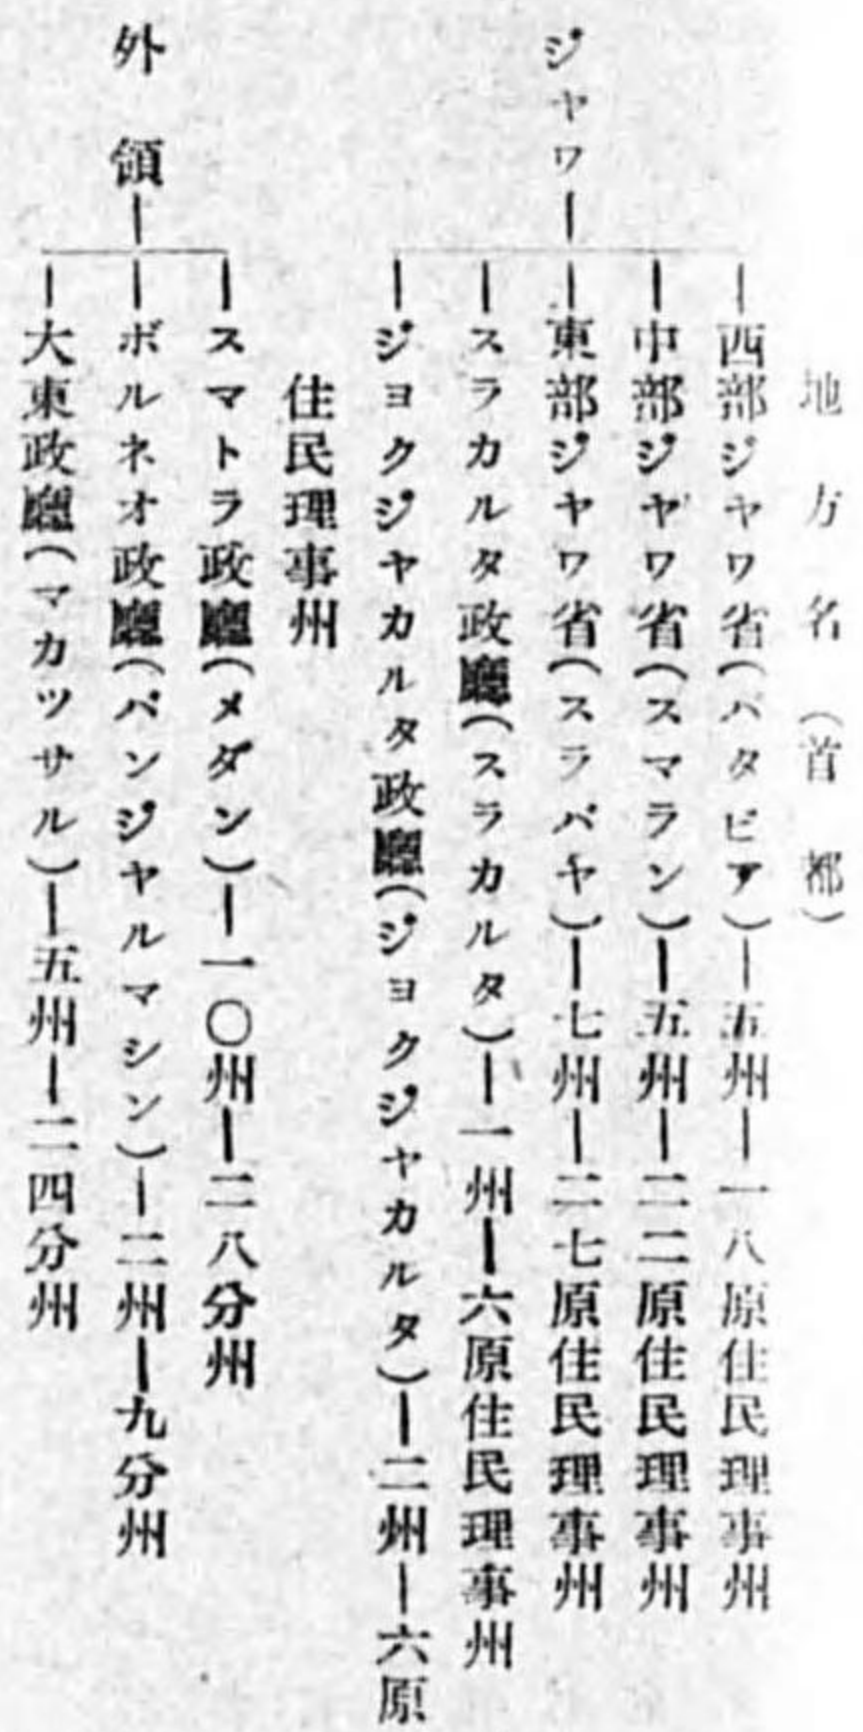 地方名(首都)
ジヤワ
西部ジヤワ省(バタビア)ー五州ー一八原住民理事州
中部ジヤワ省(スマラン)ー五州ー二二原住民理事州
東部ジヤワ省(スラバヤ)ー七州ー二七原住民理事州
スラカルタ政廳(スラカルタ)ー一州ー六原住民理事州
ジヨクジヤカルタ政廳(ジヨクジヤカルタ)ー二州ー六原
住民理事州
外領
スマトラ政廳(メダン)ー一〇州ー二八分州
ボルネオ政廳(バンジヤルマシン)ー二州ー九分州
大東政廳(マカツサル)ー五州ー二四分州